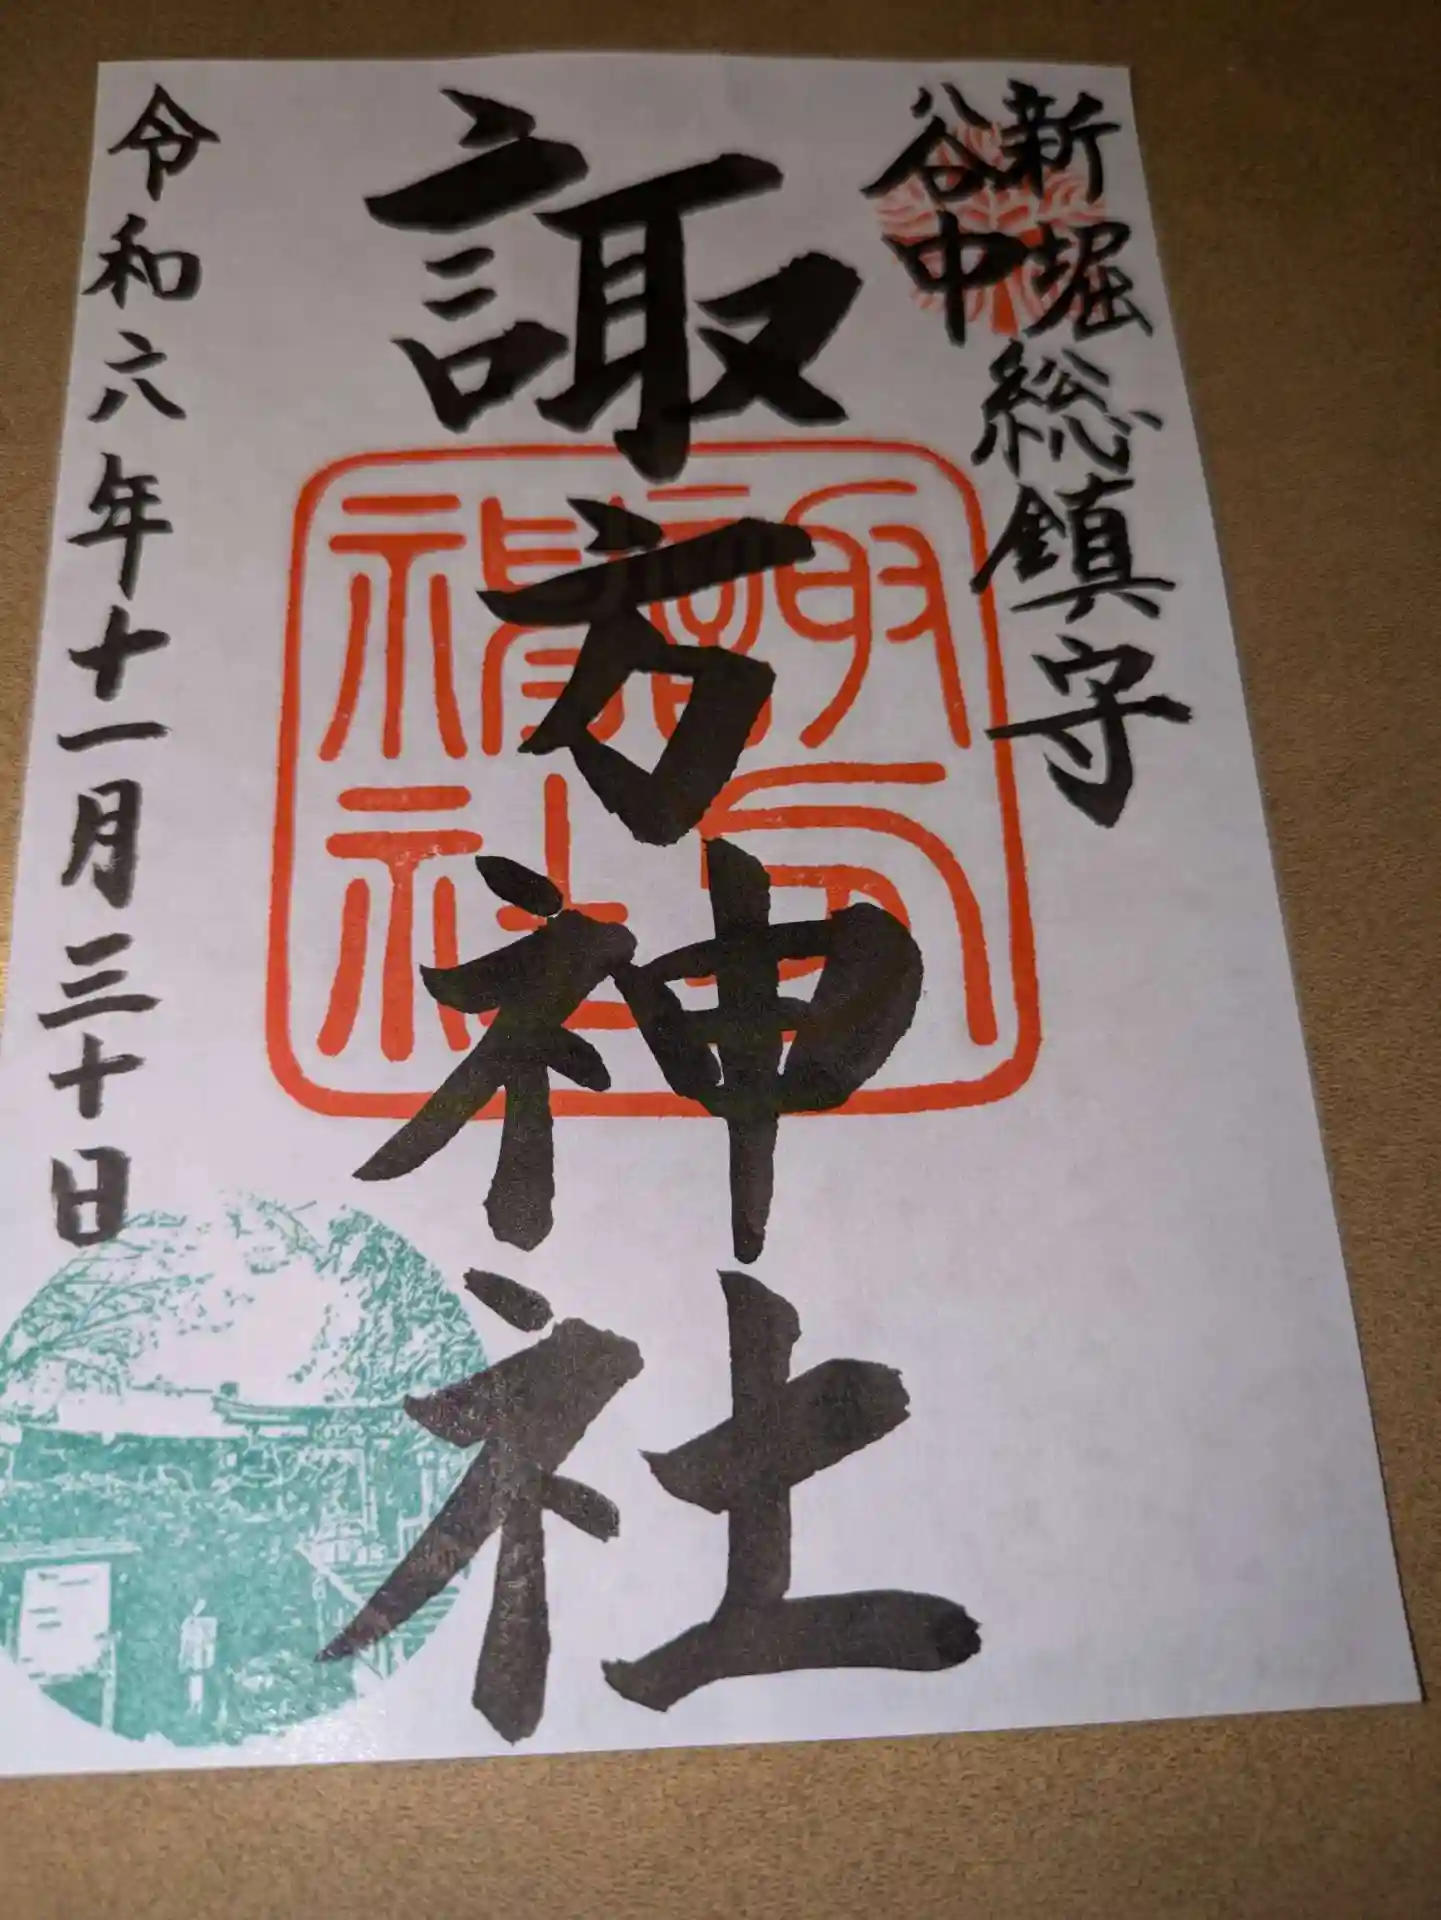 新堀
谷中
総鎮守
諏方神社
諏方神社
令和六年十一月三十日